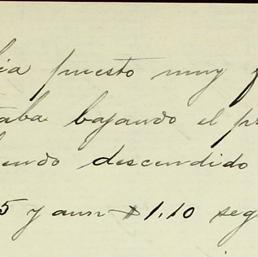 bia puesto muy
taba bajando el pr
iendo descendido
5 y aun $ 1.10 seg